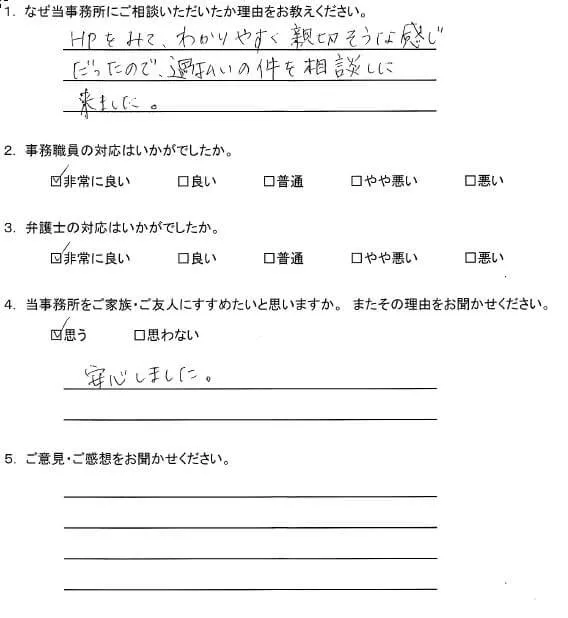 1. なぜ当事務所にご相談いただいたか理由をお教えください。
HPをみて、わかりやすく親切そうな感じ
だったので、過払いの件を相談しに
来ました。
2. 事務職員の対応はいかがでしたか。
☑非常に良い □良い □普通 □やや悪い □悪い
3. 弁護士の対応はいかがでしたか。
☑非常に良い □良い □普通 □やや悪い □悪い
4. 当事務所をご家族・ご友人にすすめたいと思いますか。 またその理由をお聞かせください。
☑思う □思わない
安心しました。
5. ご意見・ご感想をお聞かせください。